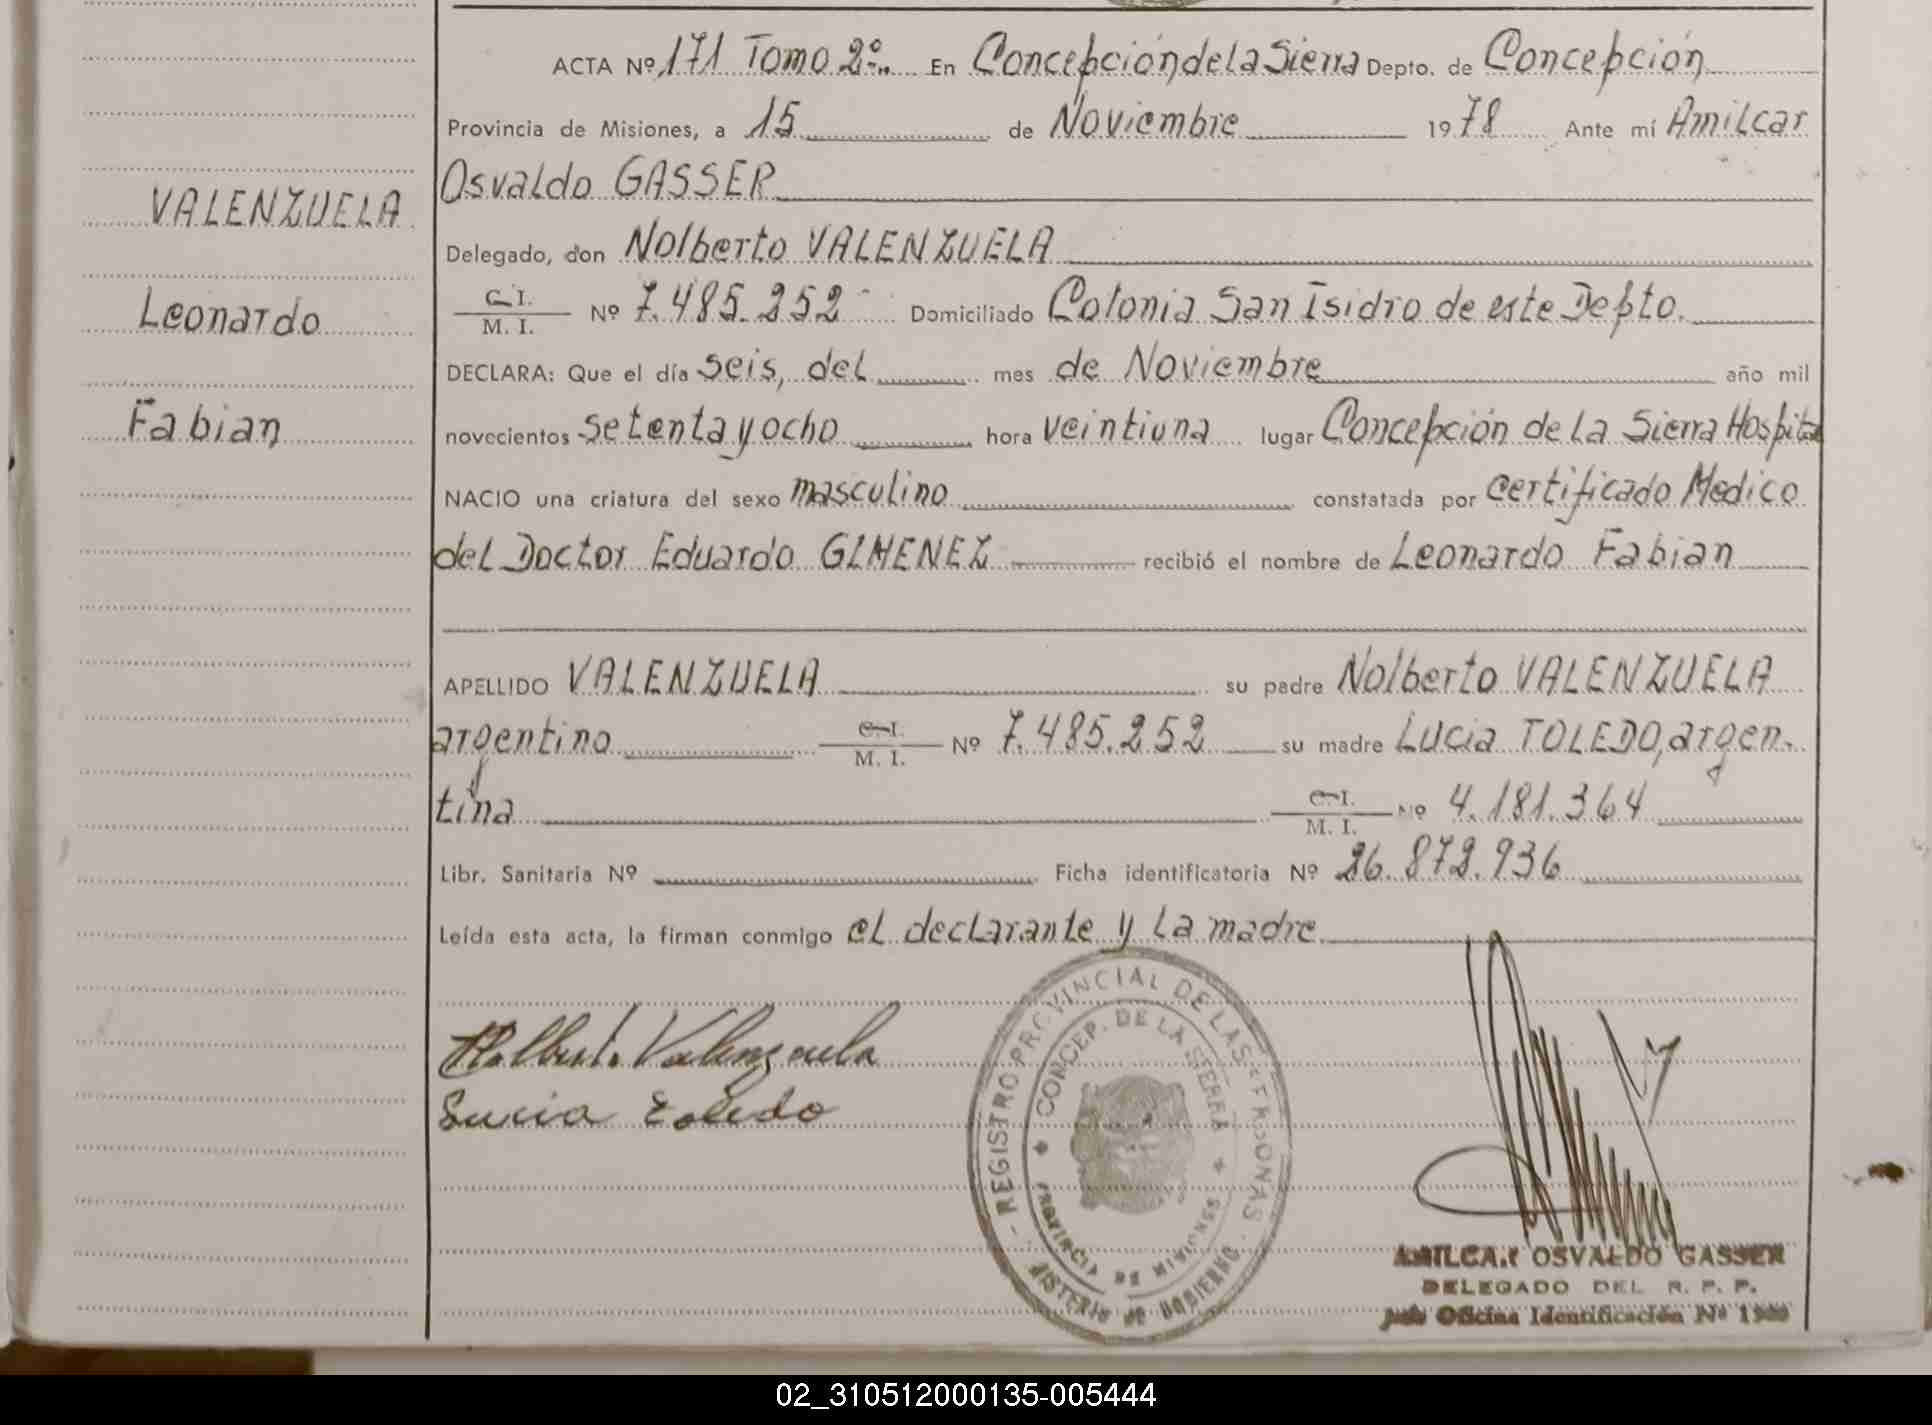 ACTA Nº 171 Tomo 2º En Concepción de la Sierra Depto. de Concepción
Provincia de Misiones, a 15 de Noviembre 1978 Ante mí Amilcar
Osvaldo GASSER
VALENZUELA
Delegado, don Nolberto VALENZUELA
C. I.
M. I. Nº 7.485.252 Domiciliado Colonia San Isidro de este Depto.
Leonardo
DECLARA: Que el día seis, del mes de Noviembre año mil
Fabian
novecientos setenta y ocho hora veintiuna lugar Concepción de la Sierra Hospital
NACIO una criatura del sexo masculino constatada por certificado Medico
del Doctor Eduardo GIMENEZ recibió el nombre de Leonardo Fabian
APELLIDO VALENZUELA su padre Nolberto VALENZUELA
argentino C. I.
M. I. Nº 7.485.252 su madre Lucia TOLEDO, argen-
tina C. I.
M. I. Nº 4.181.364
Libr. Sanitaria Nº Ficha identificatoria Nº 26.872.936
Leída esta acta, la firman conmigo el declarante y la madre
Nolberto Valenzuela
Lucia Toledo
REGISTRO PROVINCIAL DE LAS PERSONAS
CONCEP. DE LA SIERRA
PROVINCIA DE MISIONES
MISTERIO DE GOBIERNO
AMILCAR OSVALDO GASSER
DELEGADO DEL R. P. P.
Oficina Identificación Nº
02_310512000135-005444